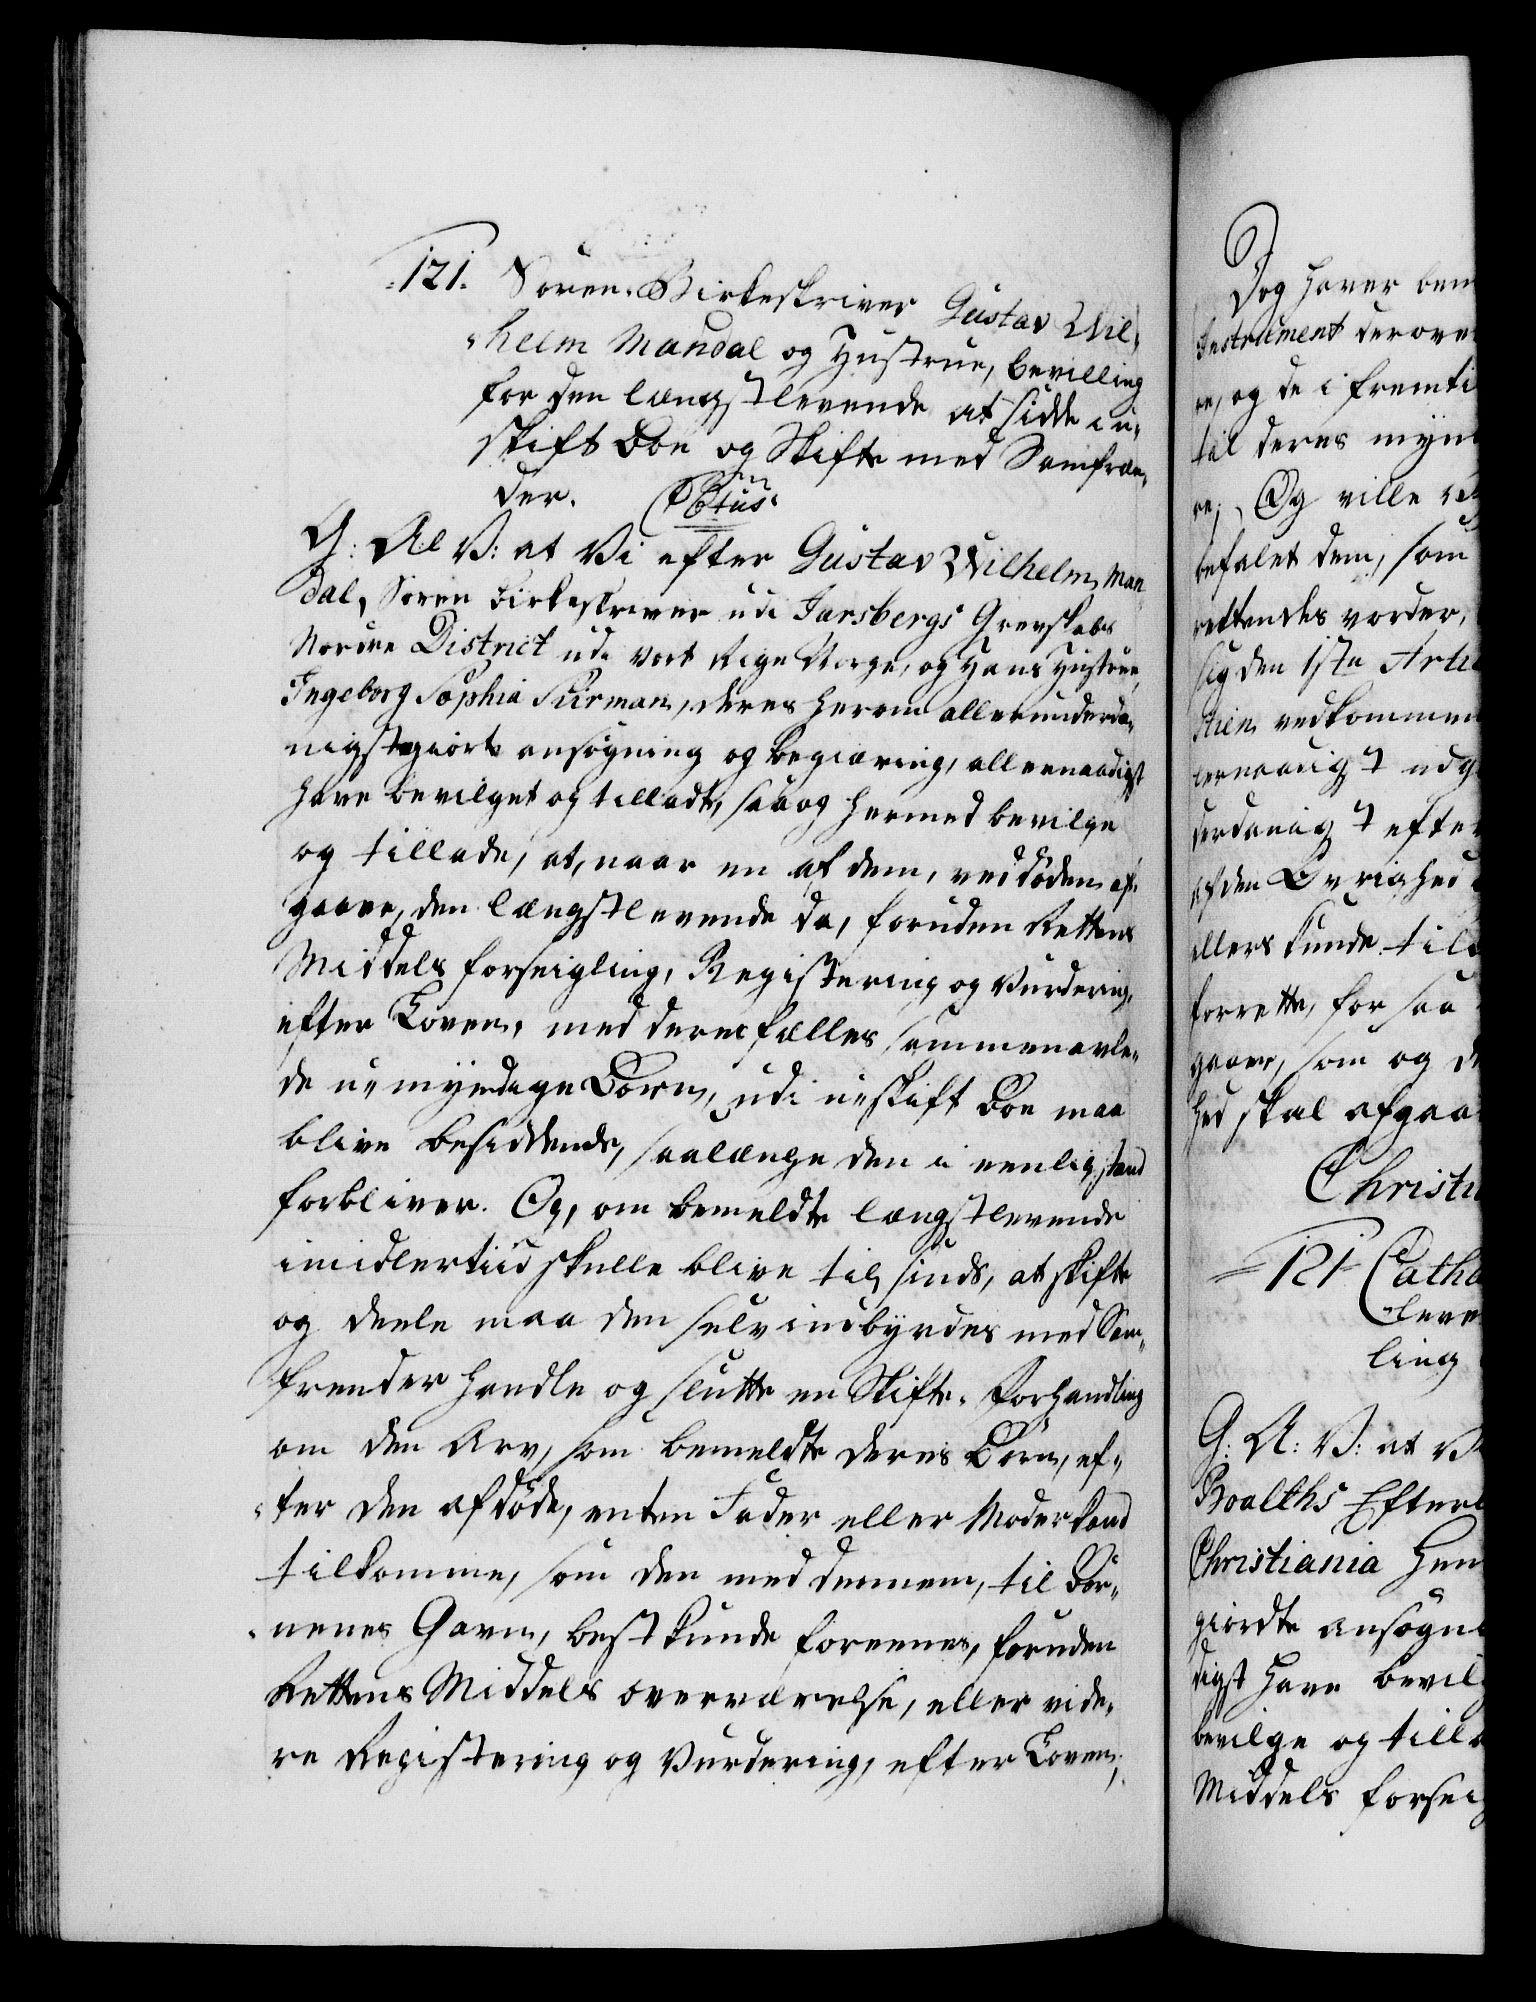 121. Soren-Birkeskriver Gustav Wil-
helm Mandal og Hustrue, bevilling
for den længstlevende at sidde i u-
skift Boe og Skifte med Samfræn-
der.
G: Al V: at Vi efter Gustav Wilhelm Man-
dal, Soren Birkeskriver udi Jarsbergs Grevskabs
Nordre District udi vort Rige Norge, og Hans Hustrue
Ingeborg Sophia Siirman, deres herom allerunderda-
nigst giorte ansøgning og begiæring, allernaadigst
have bevilget og tilladt, saa og hermed bevilge
og tillade, at, naar en af dem, ved døden af-
gaaer, den længstlevende da, foruden Rettens
Middels forseigling, Registering og Vurdering,
efter Loven, med deres fælles sammenavle-
de u-myndige Børn, udi u-skift Boe maa
blive besiddende, saalænge den i eenlig stand
forbliver. Og, om bemeldte længstlevende
imidlertiid skulle blive til sinds, at skifte
og deele maa den selv indbyrdes med Sam-
frender handle og slutte en Skifte-Forhandling
om den Arv, som bemeldte deres Børn, ef-
ter den afdøde, enten Fader eller Moder kand
tilkomme, som den med dennem, til Bør-
nenes Gavn, best kunde foreenes, foruden
Rettens Middels overværelse, eller vide-
re Registering og Vurdering, efter Loven;
Dog haver bem
Instrument derove
re, og de i fremti
til deres myn
re; Og ville
befalet dem, som
rettendes vorder,
sig den 1ste Arti
vedkommen
lernaadigst udg
derdanigst efter
af den Øvrighed
ellers kunde til
forrette, for saa
gaaer, som og d
hed skal afgaa
Christi
121 Catha
leve
ling
G: A: V: at V
Roalths Efterl
Christiania Hen
giordte ansøgn
digst have bevil
bevilge og tilla
Middels forseig